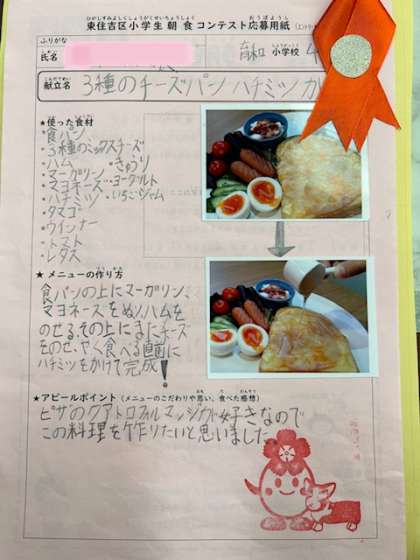 東住吉区小学生 朝食コンテスト応募用紙
ふりがな
氏名
育和 小学校 4
献立名 3種のチーズパン ハチミツか
★使った食材
・食パン
・3種のミックスチーズ
・ハム ・きゅうり
・マーガリン ・ヨーグルト
・マヨネーズ ・いちごジャム
・ハチミツ
・タマゴ
・ウインナー
・トマト
・レタス
★メニューの作り方
食パンの上にマーガリン、
マヨネーズをぬりハムを
のせる。その上にまたチーズ
をのせ、やく。食べる直前に
ハチミツをかけて完成!
★アピールポイント(メニューのこだわりや思い、食べた感想)
ピザのクアトロフォルマンジが好きなので
この料理を作りたいと思いました